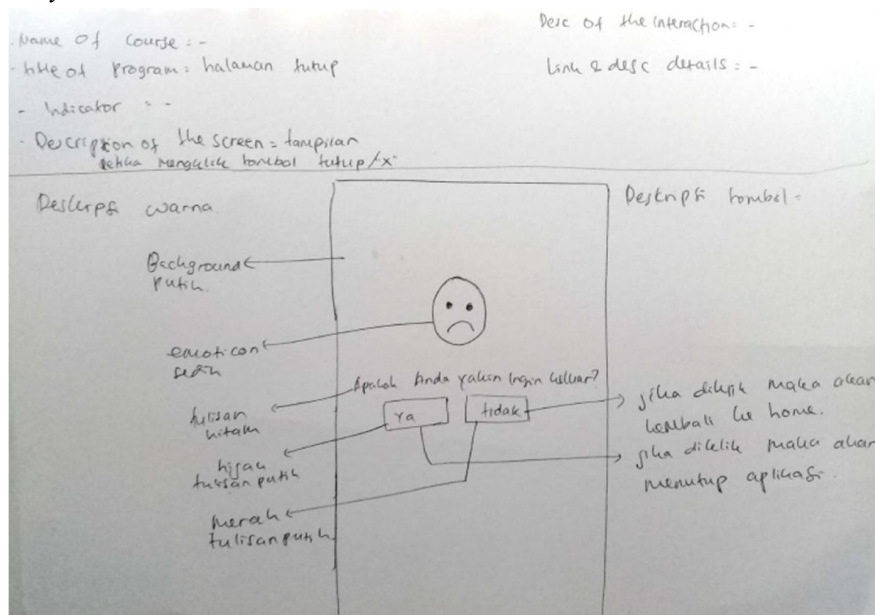 - Name of Course : -
- title of program : halaman tutup
- Indicator : -
- Description of the screen = tampilan
ketika mengklik tombol tutup / x
Desc of the Interaction : -
Link & desc details : -
Deskripsi warna
Background
putih.
emoticon
sedih
tulisan
hitam
hijau
tulisan putih
merah
tulisan putih
Apakah Anda yakin ingin keluar?
ya
tidak
Deskripsi tombol -
jika diklik maka akan
kembali ke home.
jika diklik maka akan
menutup aplikasi.